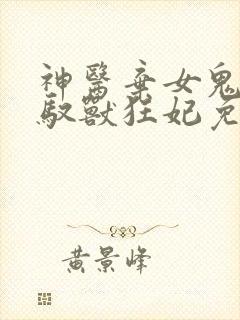 神醫棄女鬼
馭獸狂妃免
黄景峰